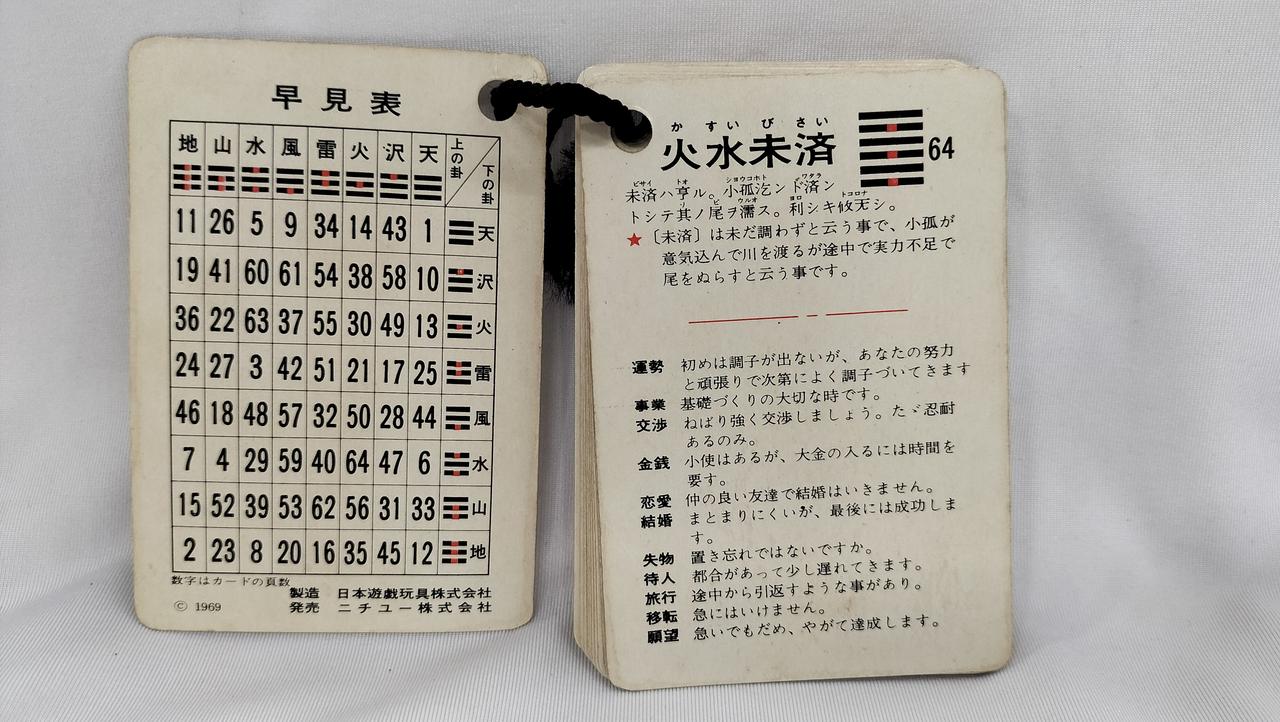 早見表
地 山 水 風 雷 火 沢 天 上の卦 下の卦
11 26 5 9 34 14 43 1 天
19 41 60 61 54 38 58 10 沢
36 22 63 37 55 30 49 13 火
24 27 3 42 51 21 17 25 雷
46 18 48 57 32 50 28 44 風
7 4 29 59 40 64 47 6 水
15 52 39 53 62 56 31 33 山
2 23 8 20 16 35 45 12 地
数字はカードの頁数
製造 日本遊戯玩具株式会社
© 1969 発売 ニチユー株式会社
かすいびさい
火水未済 64
ビサイ トオ ショウコホト ワタラ
未済ハ亨ル。小狐汔ンド済ン
ソ ビ ウルオ ヨロ トコロナ
トシテ其ノ尾ヲ濡ス。利シキ攸无シ。
★〔未済〕は未だ調わずと云う事で、小孤が
意気込んで川を渡るが途中で実力不足で
尾をぬらすと云う事です。
運勢 初めは調子が出ないが、あなたの努力
と頑張りで次第によく調子づいてきます
事業 基礎づくりの大切な時です。
交渉 ねばり強く交渉しましょう。たゞ忍耐
あるのみ。
金銭 小使はあるが、大金の入るには時間を
要す。
恋愛 仲の良い友達で結婚はいきません。
結婚 まとまりにくいが、最後には成功しま
す。
失物 置き忘れではないですか。
待人 都合があって少し遅れてきます。
旅行 途中から引返すような事があり。
移転 急にはいけません。
願望 急いでもだめ、やがて達成します。